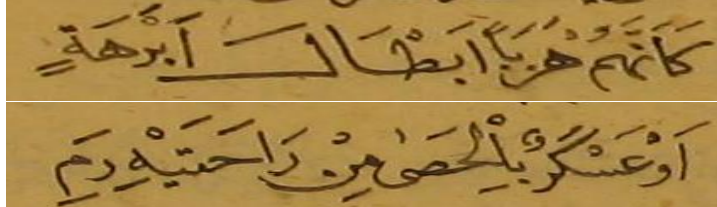 كَاَنَّهُمْ هَرَبًا اَبْطَالُ اَبْرَهَةٍ
اَوْ عَسْكَرٌ بِالْحَصٰى مِنْ رَاحَتَيْهِ رُمِ